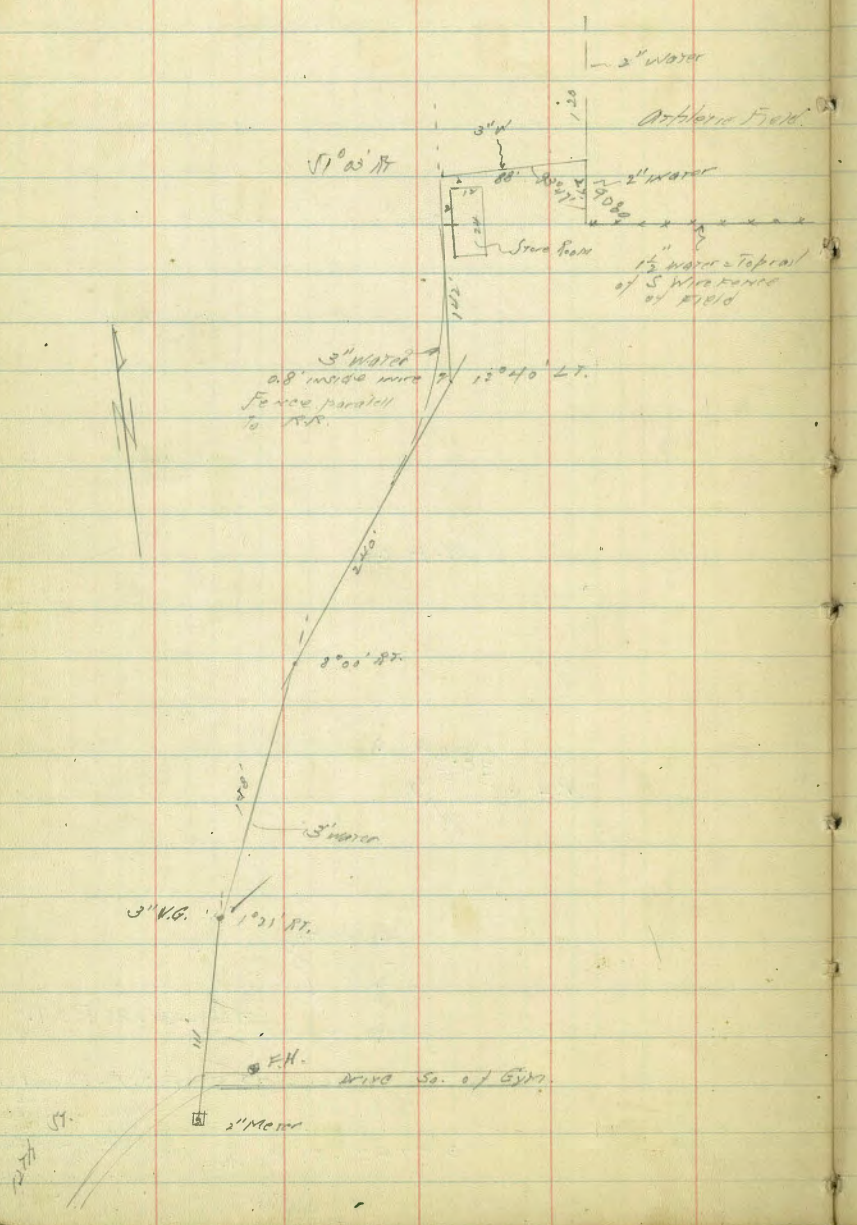 2" Water
120
Athletic Field.
3" W
51° 03' RT
88'
2" Water
12
24
Store Room
1½" Water = Toprail
of S Wire Fence
of Field
142'
3" Water
0.8' inside wire
Fence parallell
To R.R.
12° 40' LT.
240'
8° 00' RT.
148'
3" Water
3" V.G.
1° 21' RT.
111'
F.H.
Drive So. of Gym.
2" Meter
12th St.